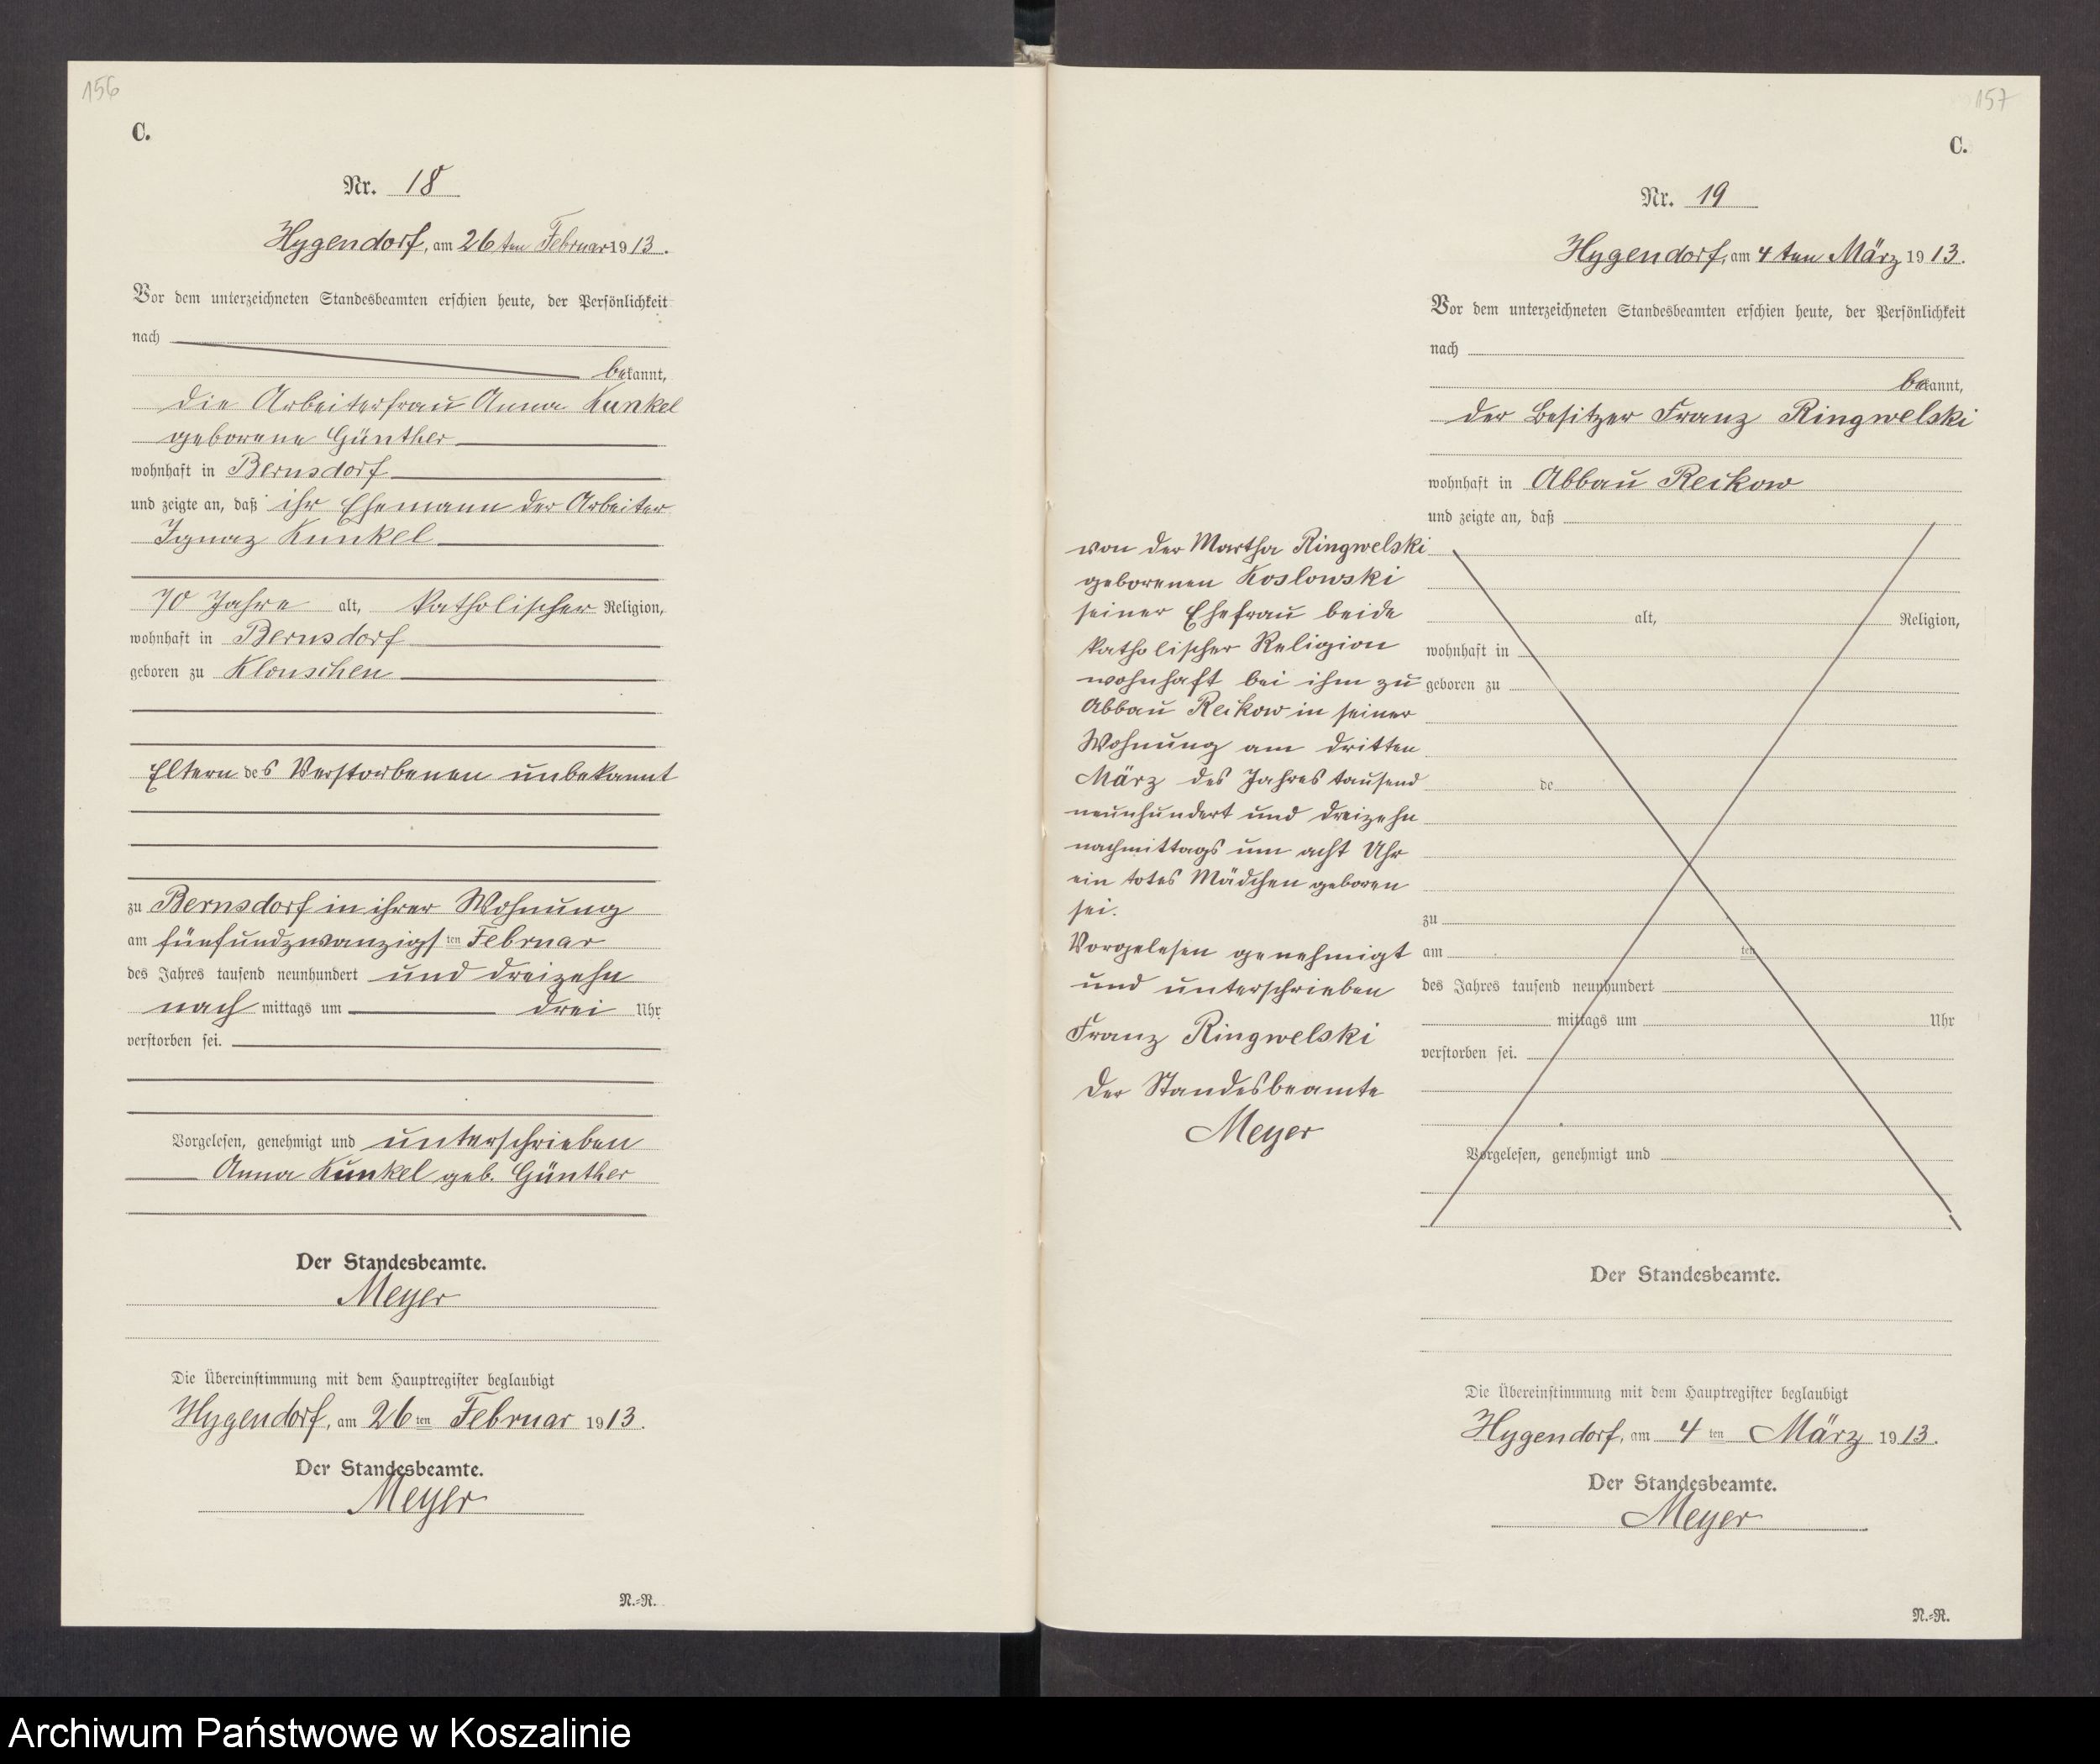 156
C.
Nr. 18
Hygendorf, am 26ten Februar 1913.
Vor dem unterzeichneten Standesbeamten erschien heute, der Persönlichkeit
nach
bekannt,
die Arbeiterfrau Anna Kunkel
geborene Günther
wohnhaft in Bernsdorf
und zeigte an, daß ihr Ehemann der Arbeiter
Ignaz Kunkel
70 Jahre alt, katholischer Religion,
wohnhaft in Bernsdorf
geboren zu Klonschen
Eltern des Verstorbenen unbekannt
zu Bernsdorf in ihrer Wohnung
am fünfundzwanzigsten Februar
des Jahres tausend neunhundert und dreizehn
nach mittags um drei Uhr
verstorben sei.
Vorgelesen, genehmigt und unterschrieben
Anna Kunkel geb. Günther
Der Standesbeamte.
Meyer
Die Übereinstimmung mit dem Hauptregister beglaubigt
Hygendorf, am 26ten Februar 1913.
Der Standesbeamte.
Meyer
N.-R.
157
C.
Nr. 19
Hygendorf, am 4ten März 1913.
Vor dem unterzeichneten Standesbeamten erschien heute, der Persönlichkeit
nach
bekannt,
der Besitzer Franz Ringwelski
wohnhaft in Abbau Reckow
und zeigte an, daß
von der Martha Ringwelski
geborenen Koslowski
seiner Ehefrau beide
katholischer Religion
wohnhaft bei ihm zu
Abbau Reckow in seiner
Wohnung am dritten
März des Jahres tausend
neunhundert und dreizehn
nachmittags um acht Uhr
ein totes Mädchen geboren
sei.
Vorgelesen genehmigt
und unterschrieben
Franz Ringwelski
Der Standesbeamte
Meyer
alt, Religion,
wohnhaft in
geboren zu
de
zu
am ten
des Jahres tausend neunhundert
mittags um Uhr
verstorben sei.
Vorgelesen, genehmigt und
Der Standesbeamte.
Die Übereinstimmung mit dem Hauptregister beglaubigt
Hygendorf, am 4ten März 1913.
Der Standesbeamte.
Meyer
N.-R.
Archiwum Państwowe w Koszalinie